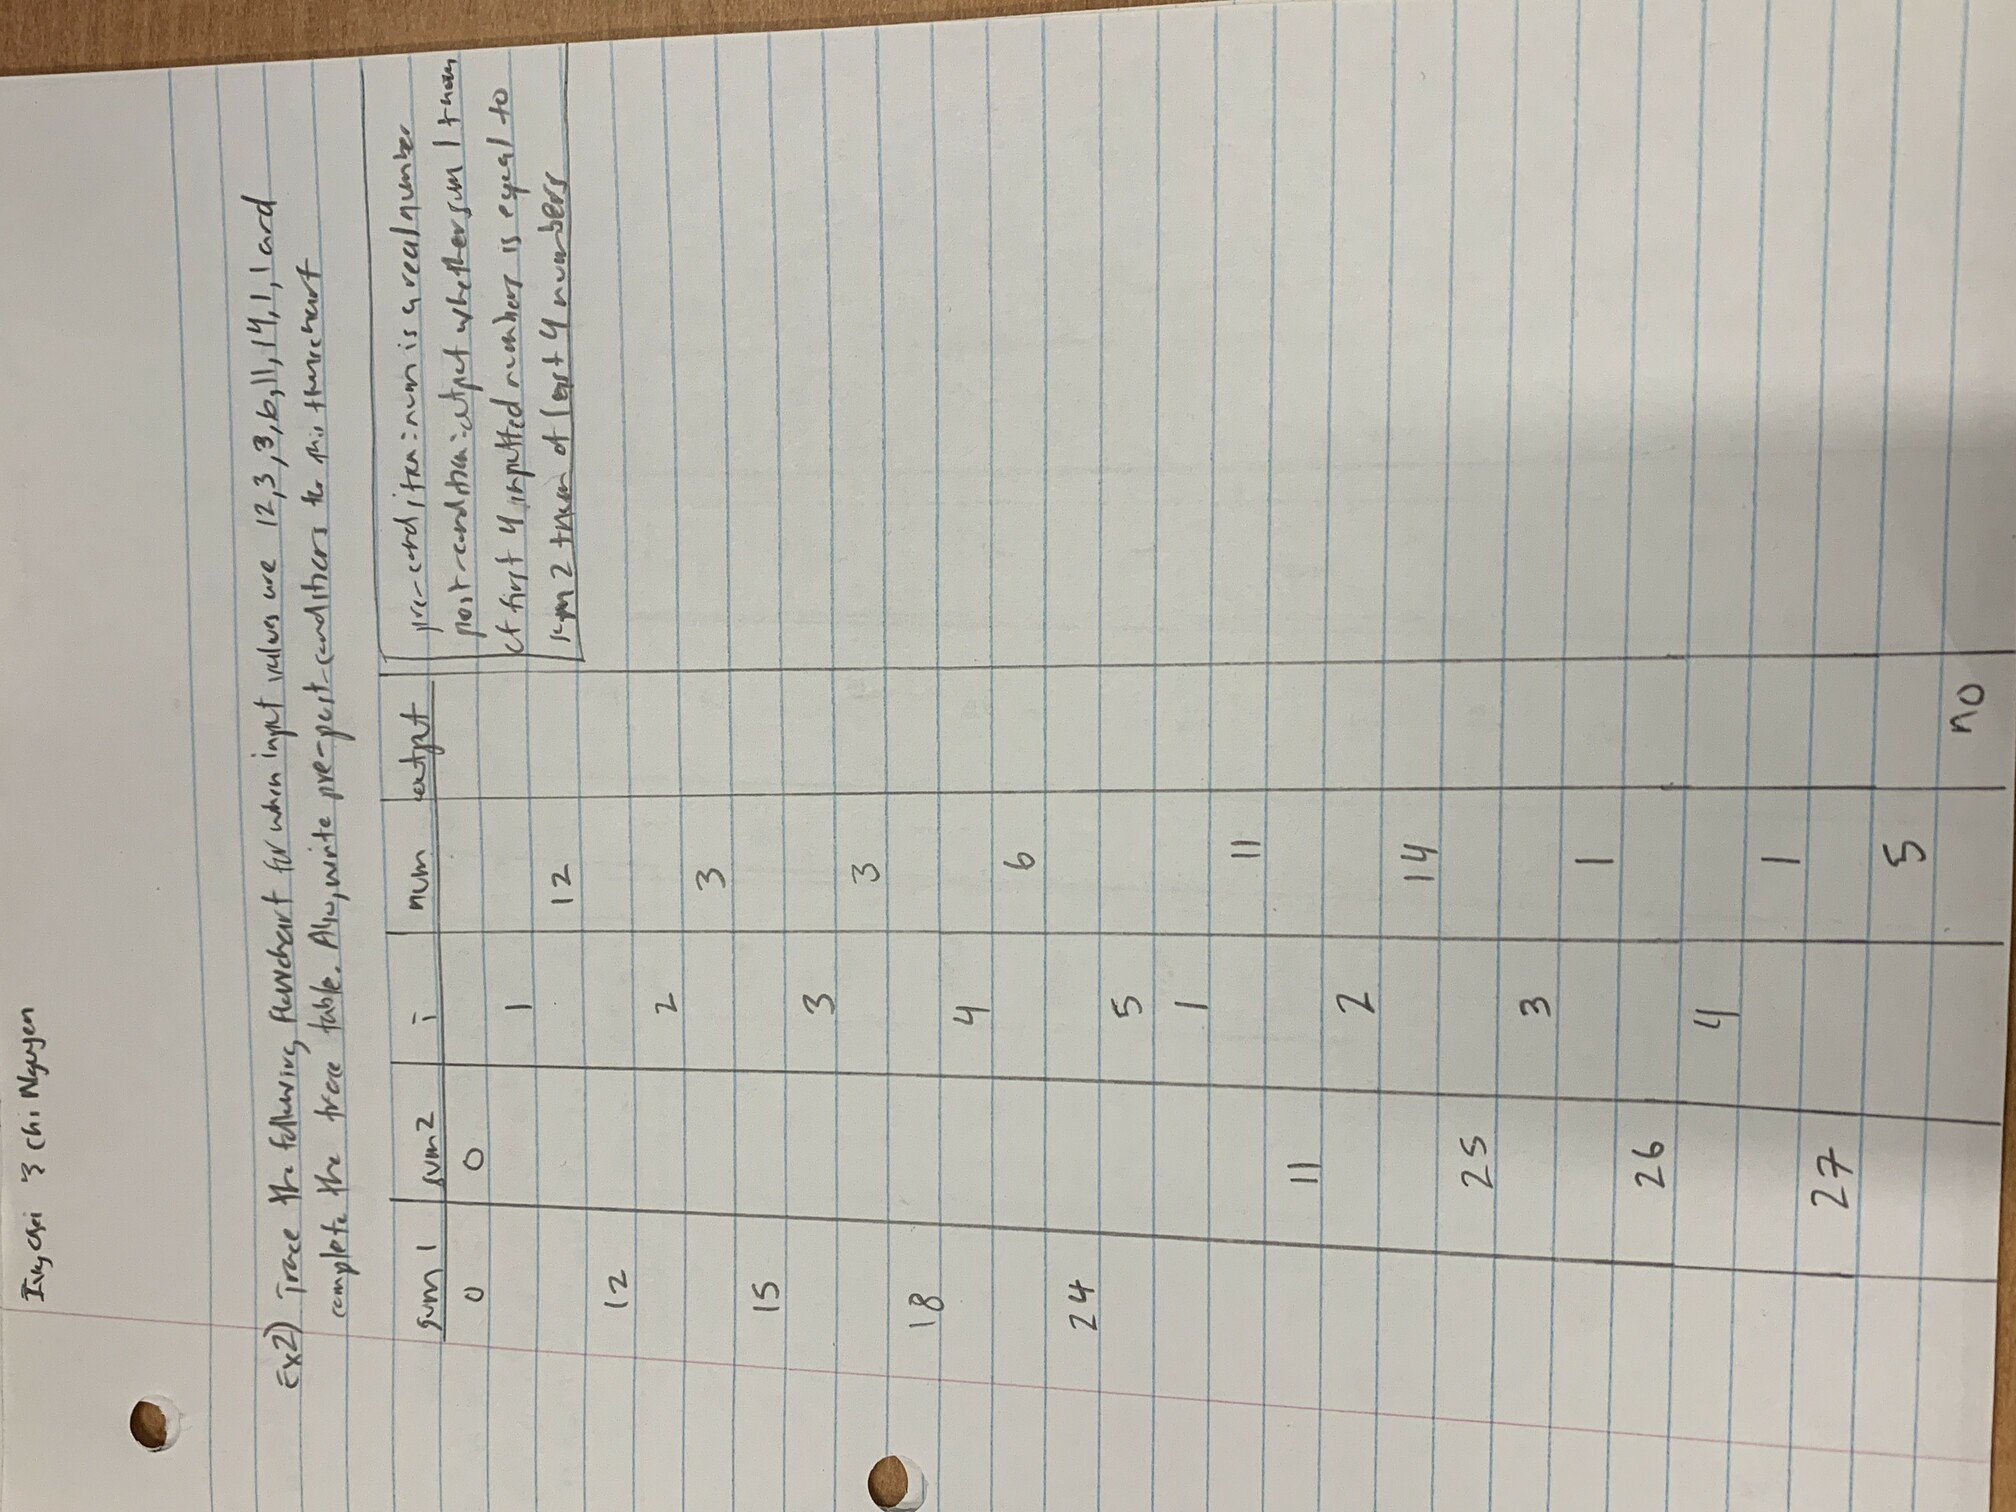 Ivy & Chi Nguyen
Ex2) Trace the following flowchart for when input values are 12,3,3,6,11,14,1,1 and
complete the trace table. Also, write pre-post-conditions for this flowchart
sum 1 sum2 i num output
0 0
1
12
12
2
3
15
3
3
18
4
6
24
5
1
11
11
2
14
25
3
1
26
4
1
27
5
no
pre-condition: num is a real number
post-condition: output whether sum 1 + num
of first 4 inputted numbers is equal to
sum 2 + num of last 4 numbers